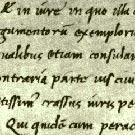 E in iure in quo illa
gumentorũ exemplorũ
ualibus etiam consular
ontraria parte ius ciui
tissimꝰ crassus iuris pe
Qui quidē cum pera